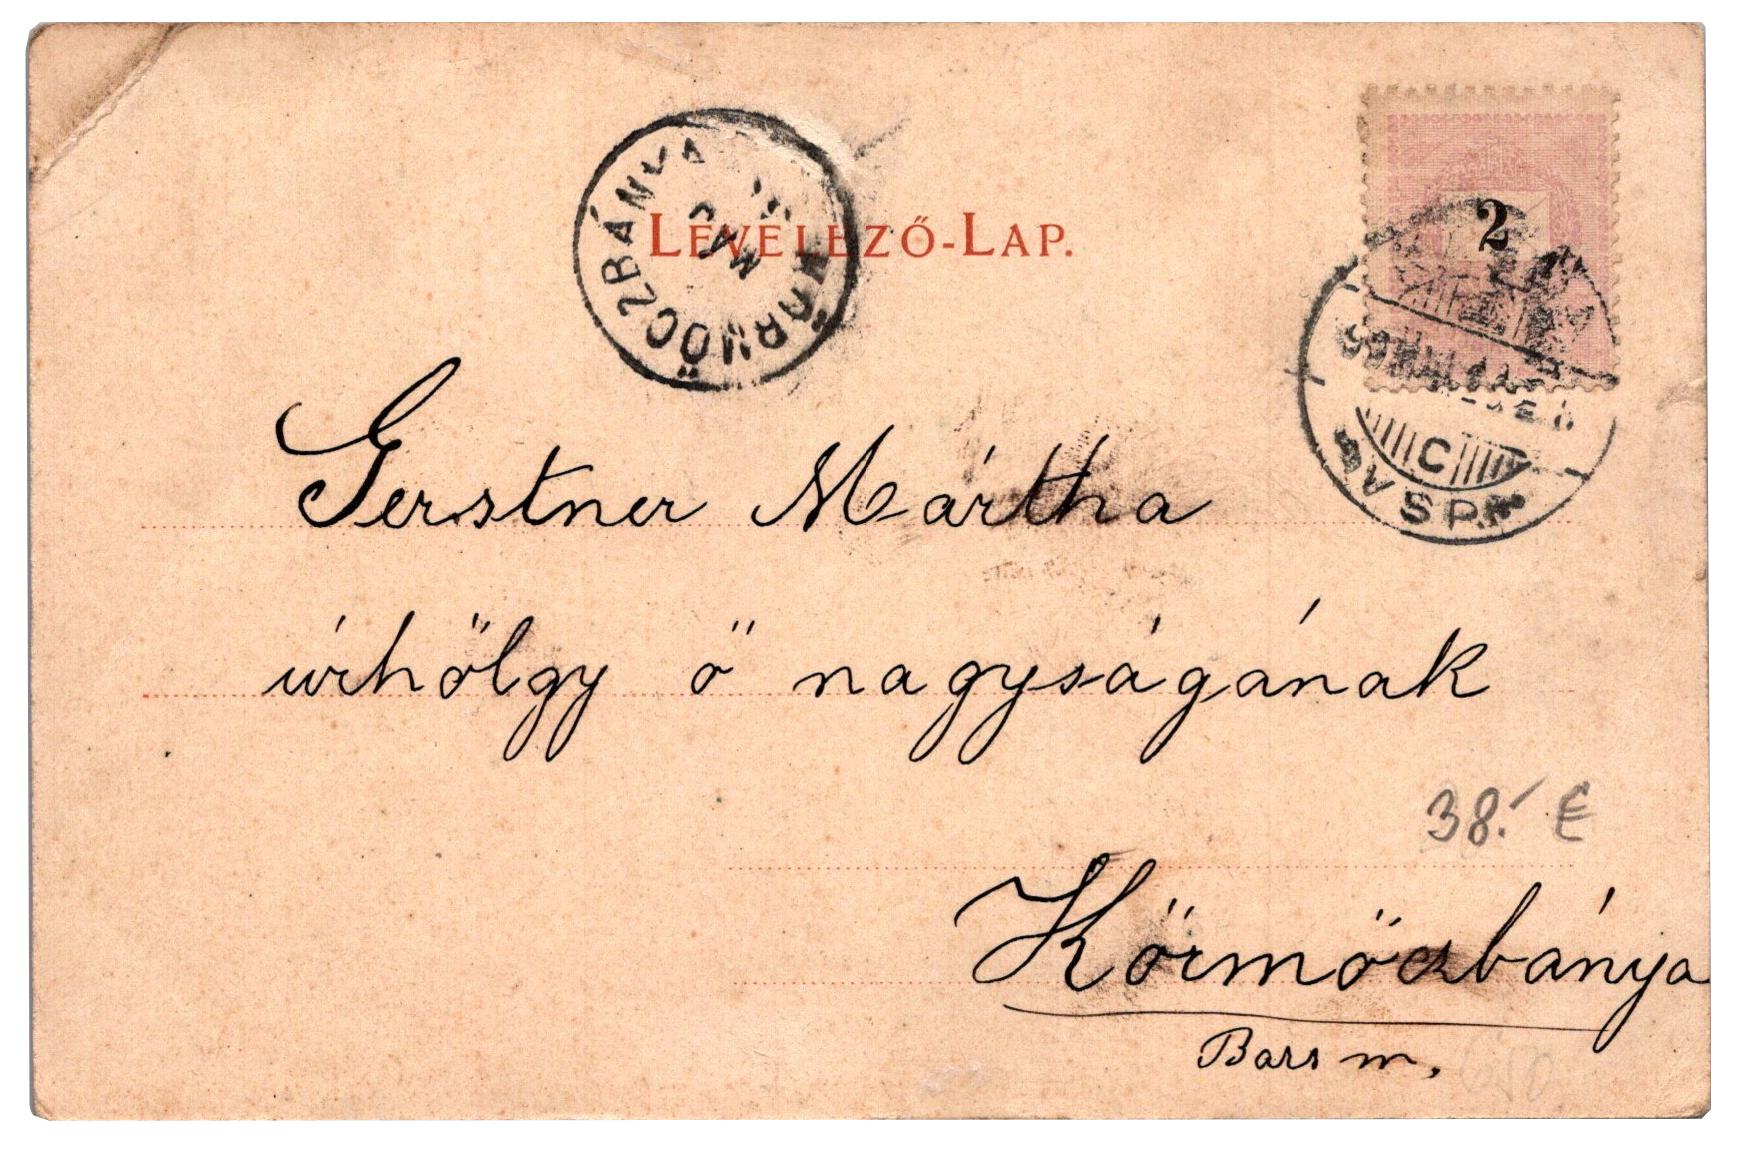 KÖRMÖCZBÁNYA
LEVELEZŐ-LAP.
2
C
Gerstner Mártha
úrhölgy ő nagyságának
38.- €
Körmöczbánya
Bars m.